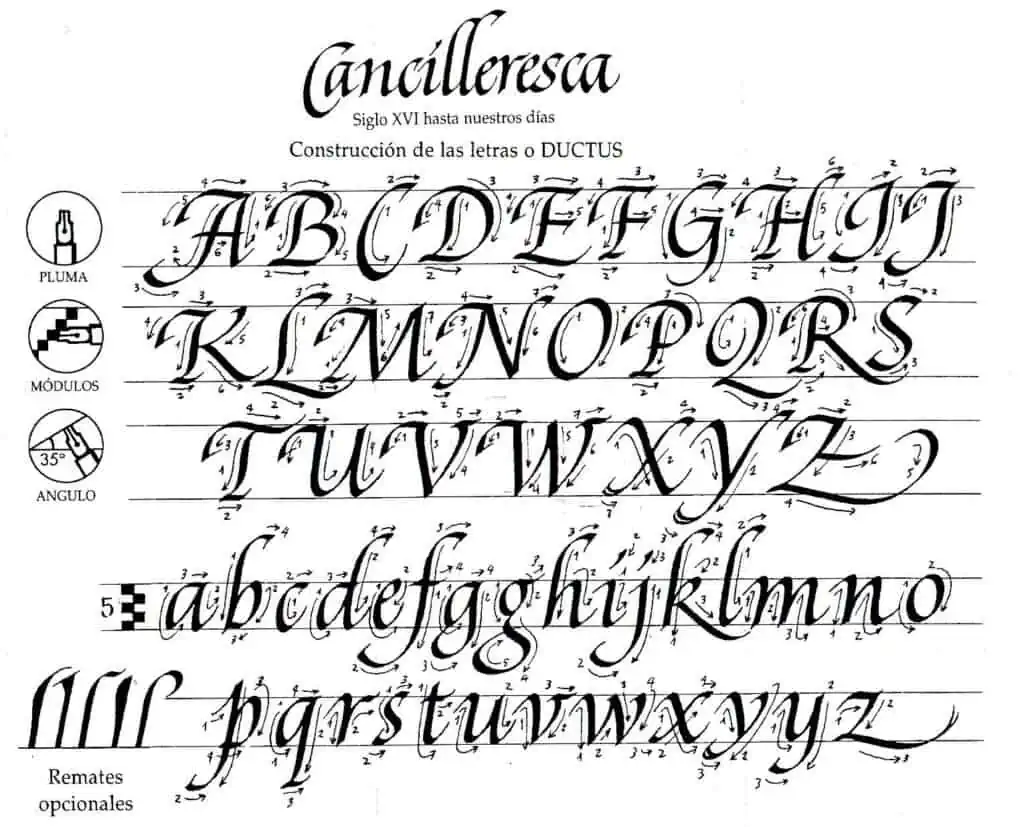 Cancilleresca
Siglo XVI hasta nuestros días
Construcción de las letras o DUCTUS
A B C D E F G H I J
PLUMA
K L M N O P Q R S
MÓDULOS
T U V W X Y Z
35°
ANGULO
5 a b c d e f g g h i j k l m n o
p q r s t u v w x y y z
Remates
opcionales